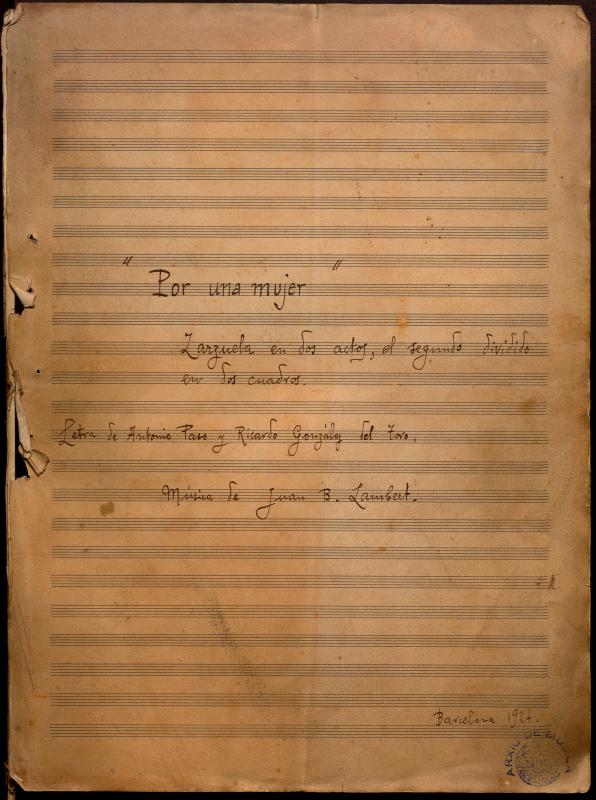 "Por una mujer"
Zarzuela en dos actos, el segundo dividido
en dos cuadros.
Letra de Antonio Paso y Ricardo González del Toro.
Música de Juan B. Lambert.
Barcelona 1924.
ARXIU DE MÚSICA